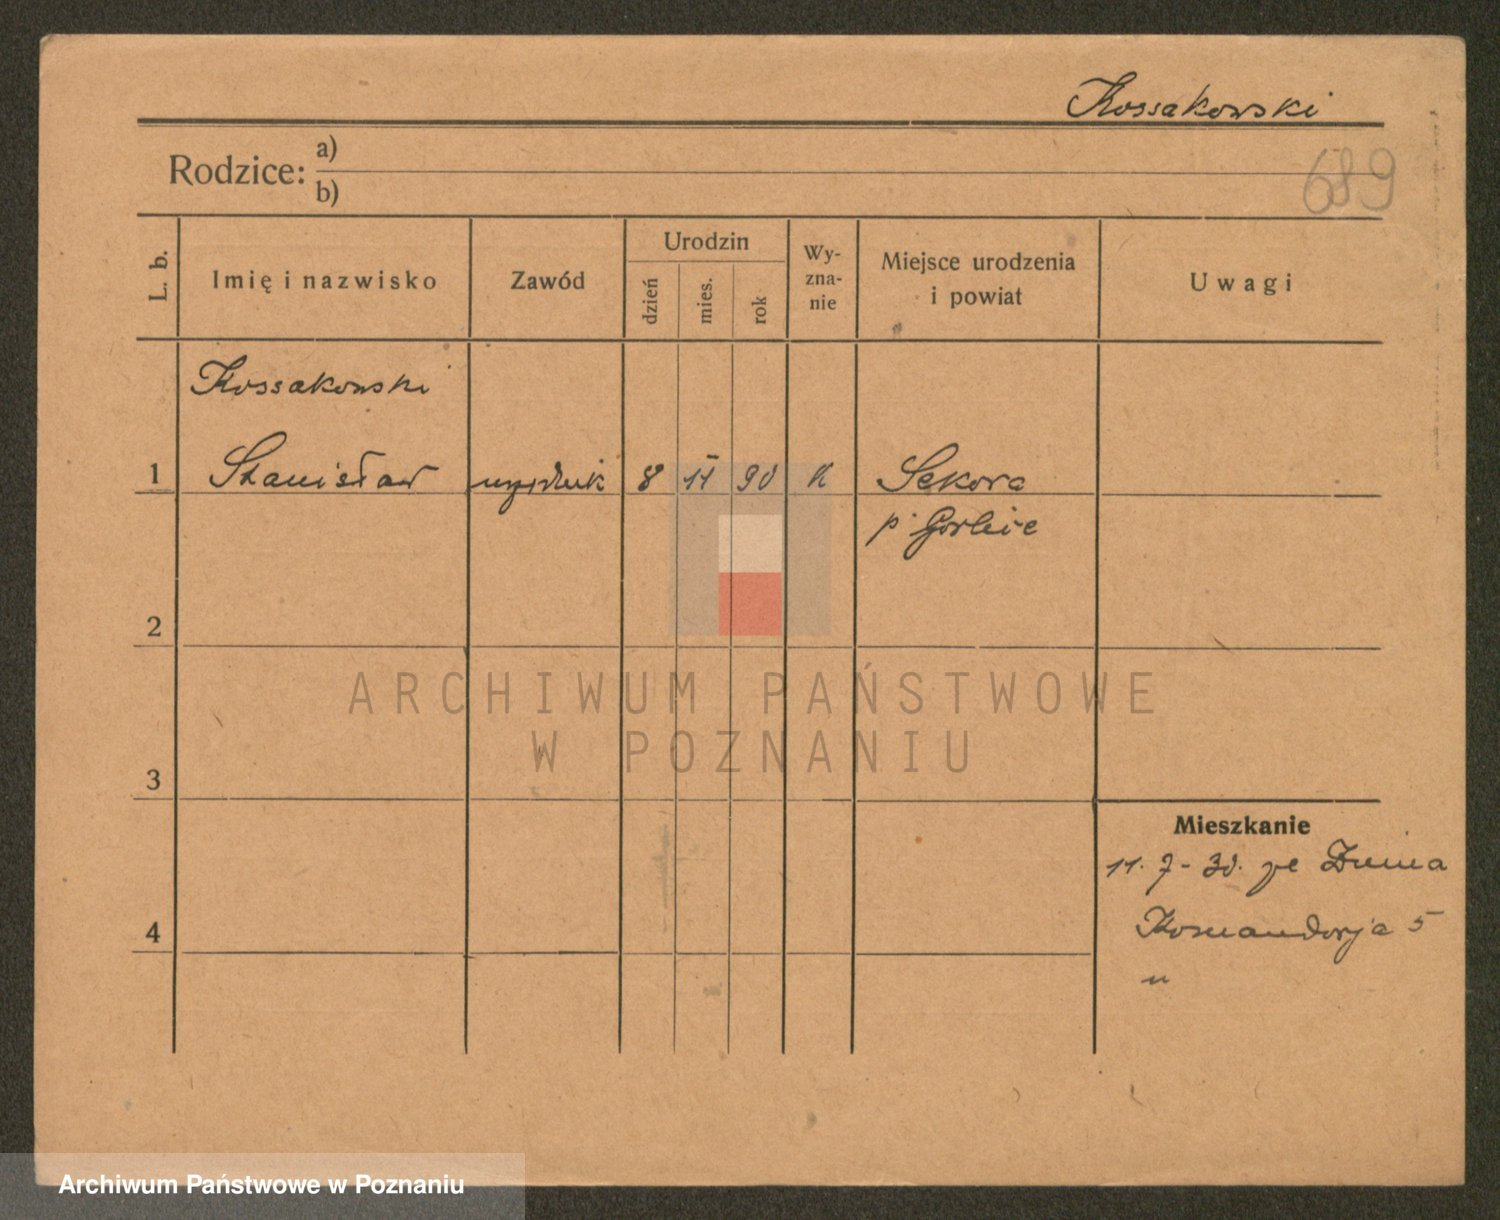 Kossakowski
Rodzice: a)
b)
689
L. b.
Imię i nazwisko
Zawód
Urodzin
dzień
mies.
rok
Wy-
zna-
nie
Miejsce urodzenia
i powiat
Uwagi
Kossakowski
1 Stanisław urzędnik 8 11 90 k Sekowa
p. Gorlice
2
ARCHIWUM PAŃSTWOWE
W POZNANIU
3
Mieszkanie
11. 7 - 30. ze
4
Komandorja 5
Archiwum Państwowe w Poznaniu